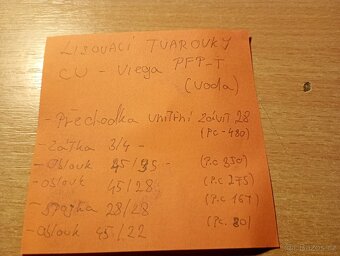 LISOVACÍ TVAROVKY
CU - Viega PFP-T
(voda)
- Přechodka vnitřní závit 28
(PC-480)
- Zátka 3/4 -
- oblouk 45/35 - (P.C 250)
- oblouk 45/28 (P.C 275)
- spojka 28/28 (P.C 167)
- oblouk 45/22 (P.C 80)